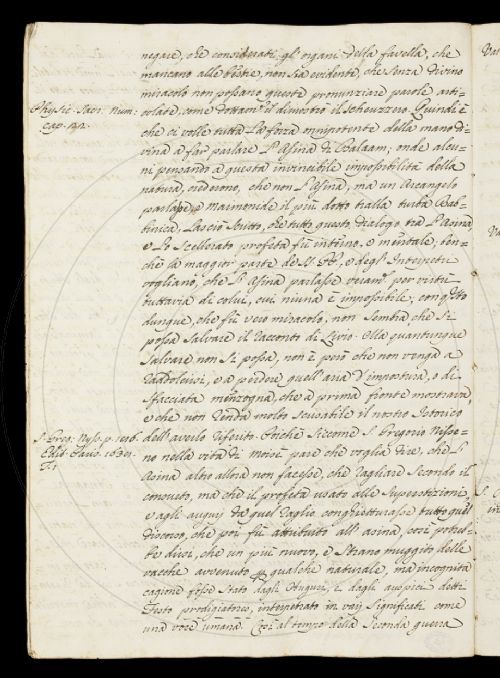 negare, che considerati gl'organi della favella, che
mancano alle bestie, non sia evidente, che senza divino
miracolo non possano queste pronunziare parole arti=
colate, come dottam.te dimostrò il Scheuzzero. Quindi è
Physic. Sacr. Num:
cap. 22.
che ci volle tutta la forza onnipotente della mano di=
vina a far parlare l'Asina di Balaam; onde alcu=
ni pensando a questa invincibile impossibilità della
natura, crederono, che non l'Asina, ma un Arcangelo
parlasse, e Maimonide il più dotto tralla turba Rab=
binica, lasciò scritto, che tutto questo dialogo tra l'Asina
e lo scellerato profeta fù interno, e mentale, ben=
chè la maggior parte de SS. PP., e degl'Interpetri
vogliano, che l'Asina parlasse veram.te per virtù
tuttavia di colui, cui niuna è impossibile; con q.sto
dunque, che fù vero miracolo, non sembra, che si
possa salvare il racconto di Livio. Ma quantunque
salvare non si possa, non è però che non venga a
raddolcirsi, e a perdere quell'aria d'impostura, o di
sfacciata menzogna, che a prima fronte mostrava,
e che non renda molto scusabile il nostro Istorico
dell'averlo riferito. Poichè siccome S. Gregorio Nisse=
S. Greg. Nyss. p.
Edit. Paris. 1638.
T. 1
no nella vita di Moisè pare che voglia dire, che l'
Asina altro allora non facesse, che ragliare secondo il
consueto, ma che il profeta usato alle superstizioni,
e agli augurj da quel raglio conghietturasse tutto quel
discorso, che poi fù attribuito all'asina, così potreb=
be dirsi, che un più nuovo, e strano muggito delle
vacche avvenuto per qualche naturale, ma incognita
cagione fosse stato dagli Auguri, e dagli auspici detti
Testo prodigiatores, interpetrato in varj significati come
una voce umana. Così al tempo della seconda guerra